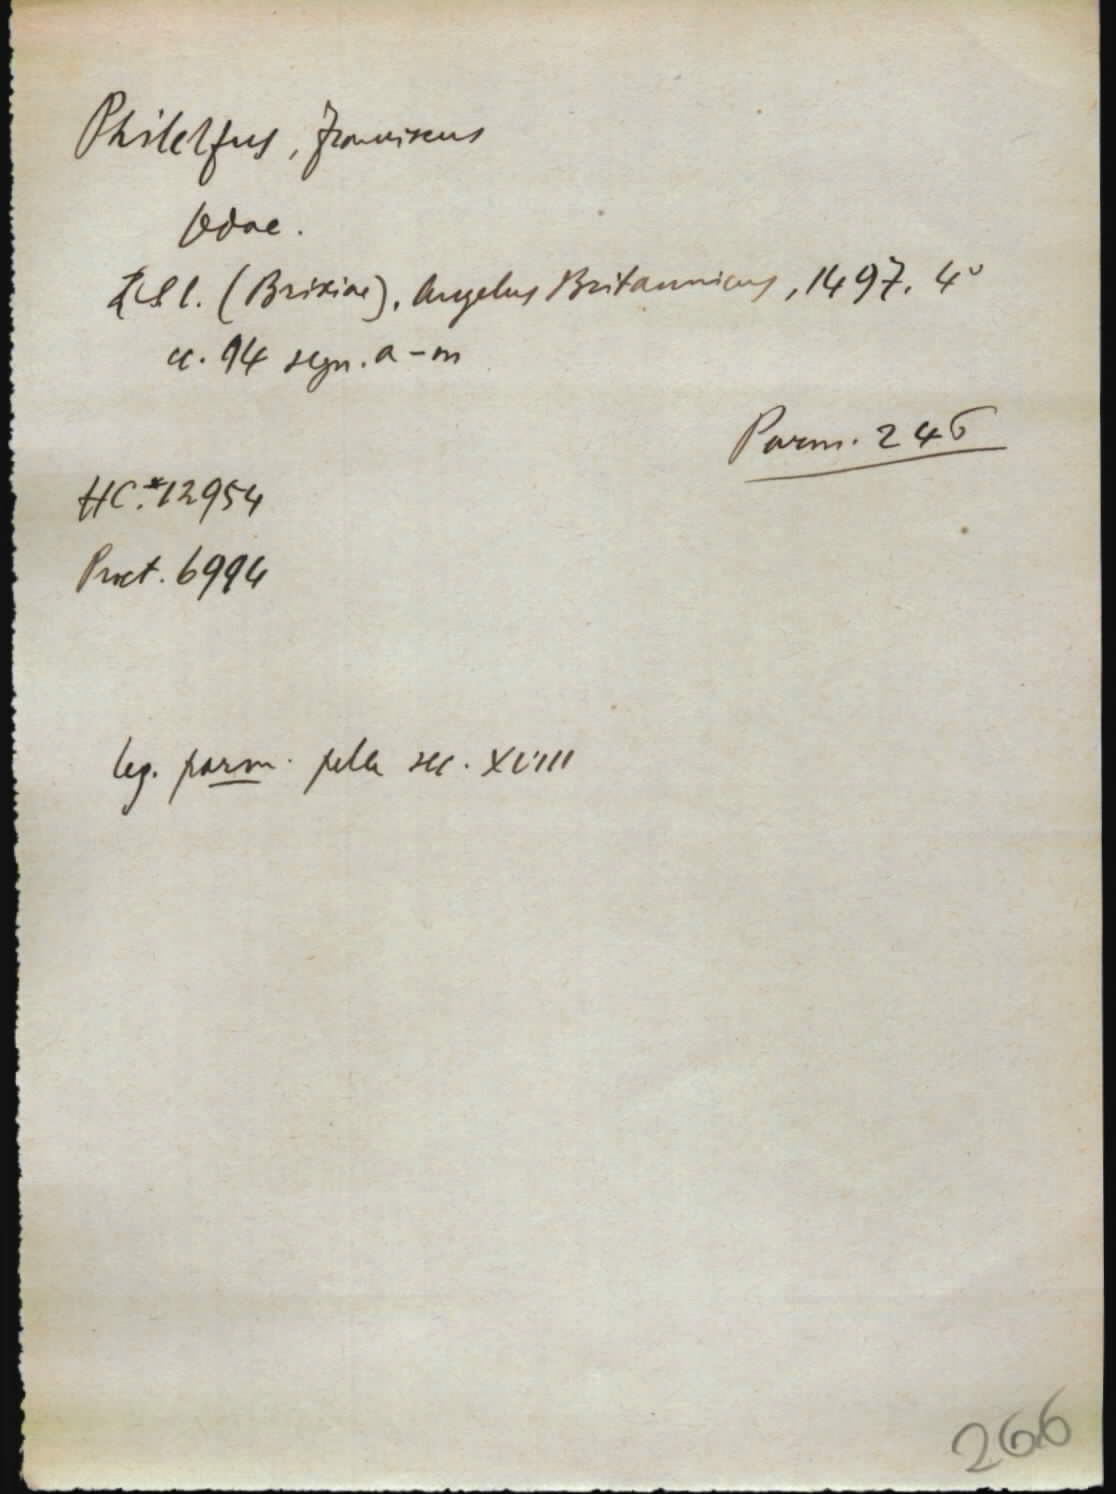 Philelfus, Franciscus
Odae.
S l. (Brixiae), Angelus Britannicus, 1497. 4°
cc. 94 segn. a-m
Parm. 246
HC.*12954
Proct. 6994
leg. parm. pelle sec. XVIII
266